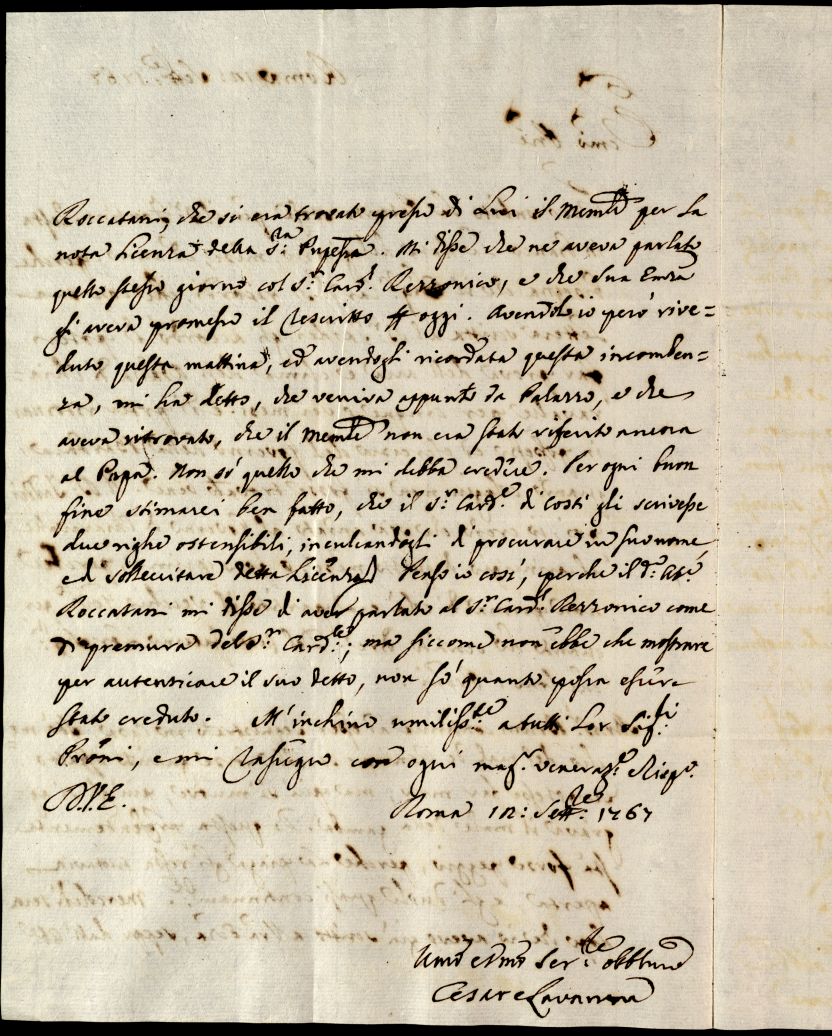 Roccatani, che si era trovato presso di Lui il Memle per la
nota Licenza della S.ra Pnpessa. Mi disse che ne aveva parlato
quello stesso giorno col S.r Card.l Rezzonico, e che Sua Emza
gli aveva promesso il rescritto oggi. Avendolo io però rive=
duto questa mattina, ed avendogli ricordata questa incomben=
za, mi ha detto, che veniva appunto da Palazzo, e che
aveva ritrovato, che il Memle non era stato riferito ancora
al Papa. Non sò quello che mi debba credere. Per ogni buon
fine stimarei ben fatto, che il S.r Card.e di costì gli scrivesse
due righe ostensibili, inculcandogli di procurare in suo nome,
ed sollecitare detta Licenza. Penso io così, perche il d.o Ab.e
Roccatani mi disse di aver parlato al S.r Card.l Rezzonico come
di premura del S.r Card.le; ma siccome non ebbe che mostrare
per autenticare il suo detto, non sò quanto possa essere
stato creduto. M'inchino umiliss.te a tutti Lor Sig.ri
Proni, e mi rassegno con ogni mag.r veneraz.e Risp.
D.V.E.
Roma 12: Sett.re 1767
Umo e Dmo Ser.re obblmo
Cesare